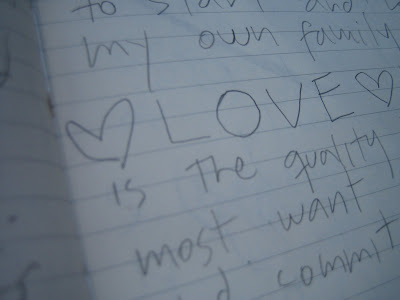 to start and
my own family
♡ LOVE ♡
is the quality
most want
commit